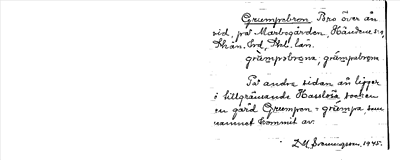 Grumpebron Bro över ån
vid, på Marbogården, Händene sn,
Skån. hd, Skbl. län.
grùmpebrona, grùmpebron
På andra sidan ån ligger
i tillgränsande Hasslösa socken
en gård Grumpan - grùmpa, som
namnet kommit av.
Brunngson. 1945.